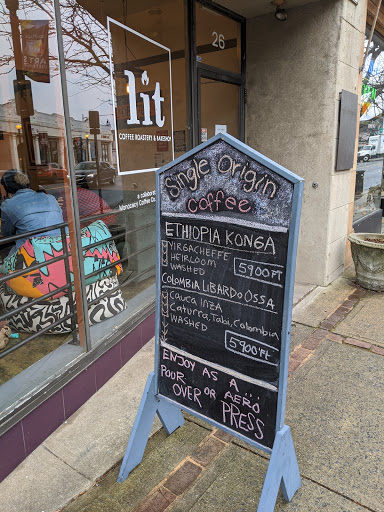 26
lit
COFFEE ROASTERY & BAKESHOP
a collaboration
Monocacy Coffee Co
ARTS
Single Origin
Coffee
ETHIOPIA KONGA
YIRGACHEFFE
HEIRLOOM
WASHED
5900FT
COLOMBIA LIBARDO OSSA
CAUCA INZA
Caturra, Tabi, Colombia
WASHED
5900FT
ENJOY AS A ..
POUR OR AERO
OVER PRESS